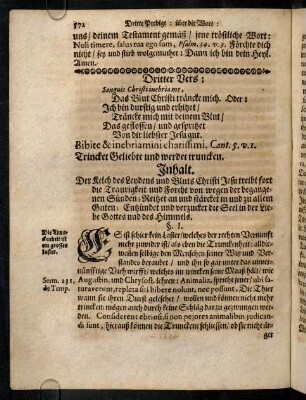 572 Dritte Predige: über die Wort:
uns/ deinem Testament gemäß/ jene tröstliche Wort:
Noli timere, salus tua ego sum, Psalm. 34. v. 3. Förchte dich
nicht/ sey und stird wolgemuthet: Dann ich bin dein Heyl.
Amen.
Dritter Vers:
Sanguis Christi inebria me,
Das Blut Christi träncke mich. Oder:
Ich bin durstig und erhitzet/
Träncke mich mit deinem Blut/
Das geflossen/ und gespritzet
Von dir liebster Jesu gut.
Bibite & inebriamini charissimi, Cant. 5. v. 1.
Trincket Geliebte und werdet truncken.
Inhalt.
Der Kelch des Leydens und Bluts Christi Jesu treibt fort
die Traurigkeit und Forcht von wegen der begangenen
Sünden: Reitzet an und stärcket in und zu allem
Guten: Entzündet und verzucket die Seel in der Liebe
Gottes und des Himmels.
§. I.
Die Trunckenheit ist
ein grosses
laster.
ES ist schier kein Laster/ welches der rechten Vernunfft
mehr zuwider ist/ als eben die Trunckenheit: alldieweilen
selbige den Menschen seiner Witz und Verstandes
beraubet/ und ihn so gar unter das unvernünfftige
Viech wirfft/ welches im trincken seine Maaß hält/ wie
Serm. 231.
de Temp.
Augustin. und Chrysost. lehren: Animalia, spricht jener/ ubi satura
fuerint, repleta sibi bibere nolunt, nec possunt. Die Thier
wann sie ihren Durst geleschet/ wollen und können nicht mehr
trincken: mögen auch durch keine Schläg darzu gezwungen werden.
Considerent ebriosi, si non pejores animalibus judicandi
sunt, hierauß können die Trunckene schliessen/ ob sie nicht ärger